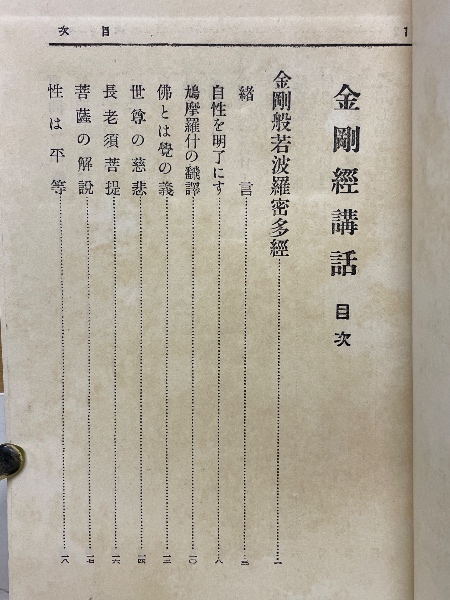 目次
金剛經講話 目次
金剛般若波羅密多經……一
緒言……三
自性を明了にす……八
鳩摩羅什の飜譯……一〇
佛とは覺の義……一三
世尊の慈悲……一四
長老須菩提……一六
菩薩の解說……一七
性は平等……一八